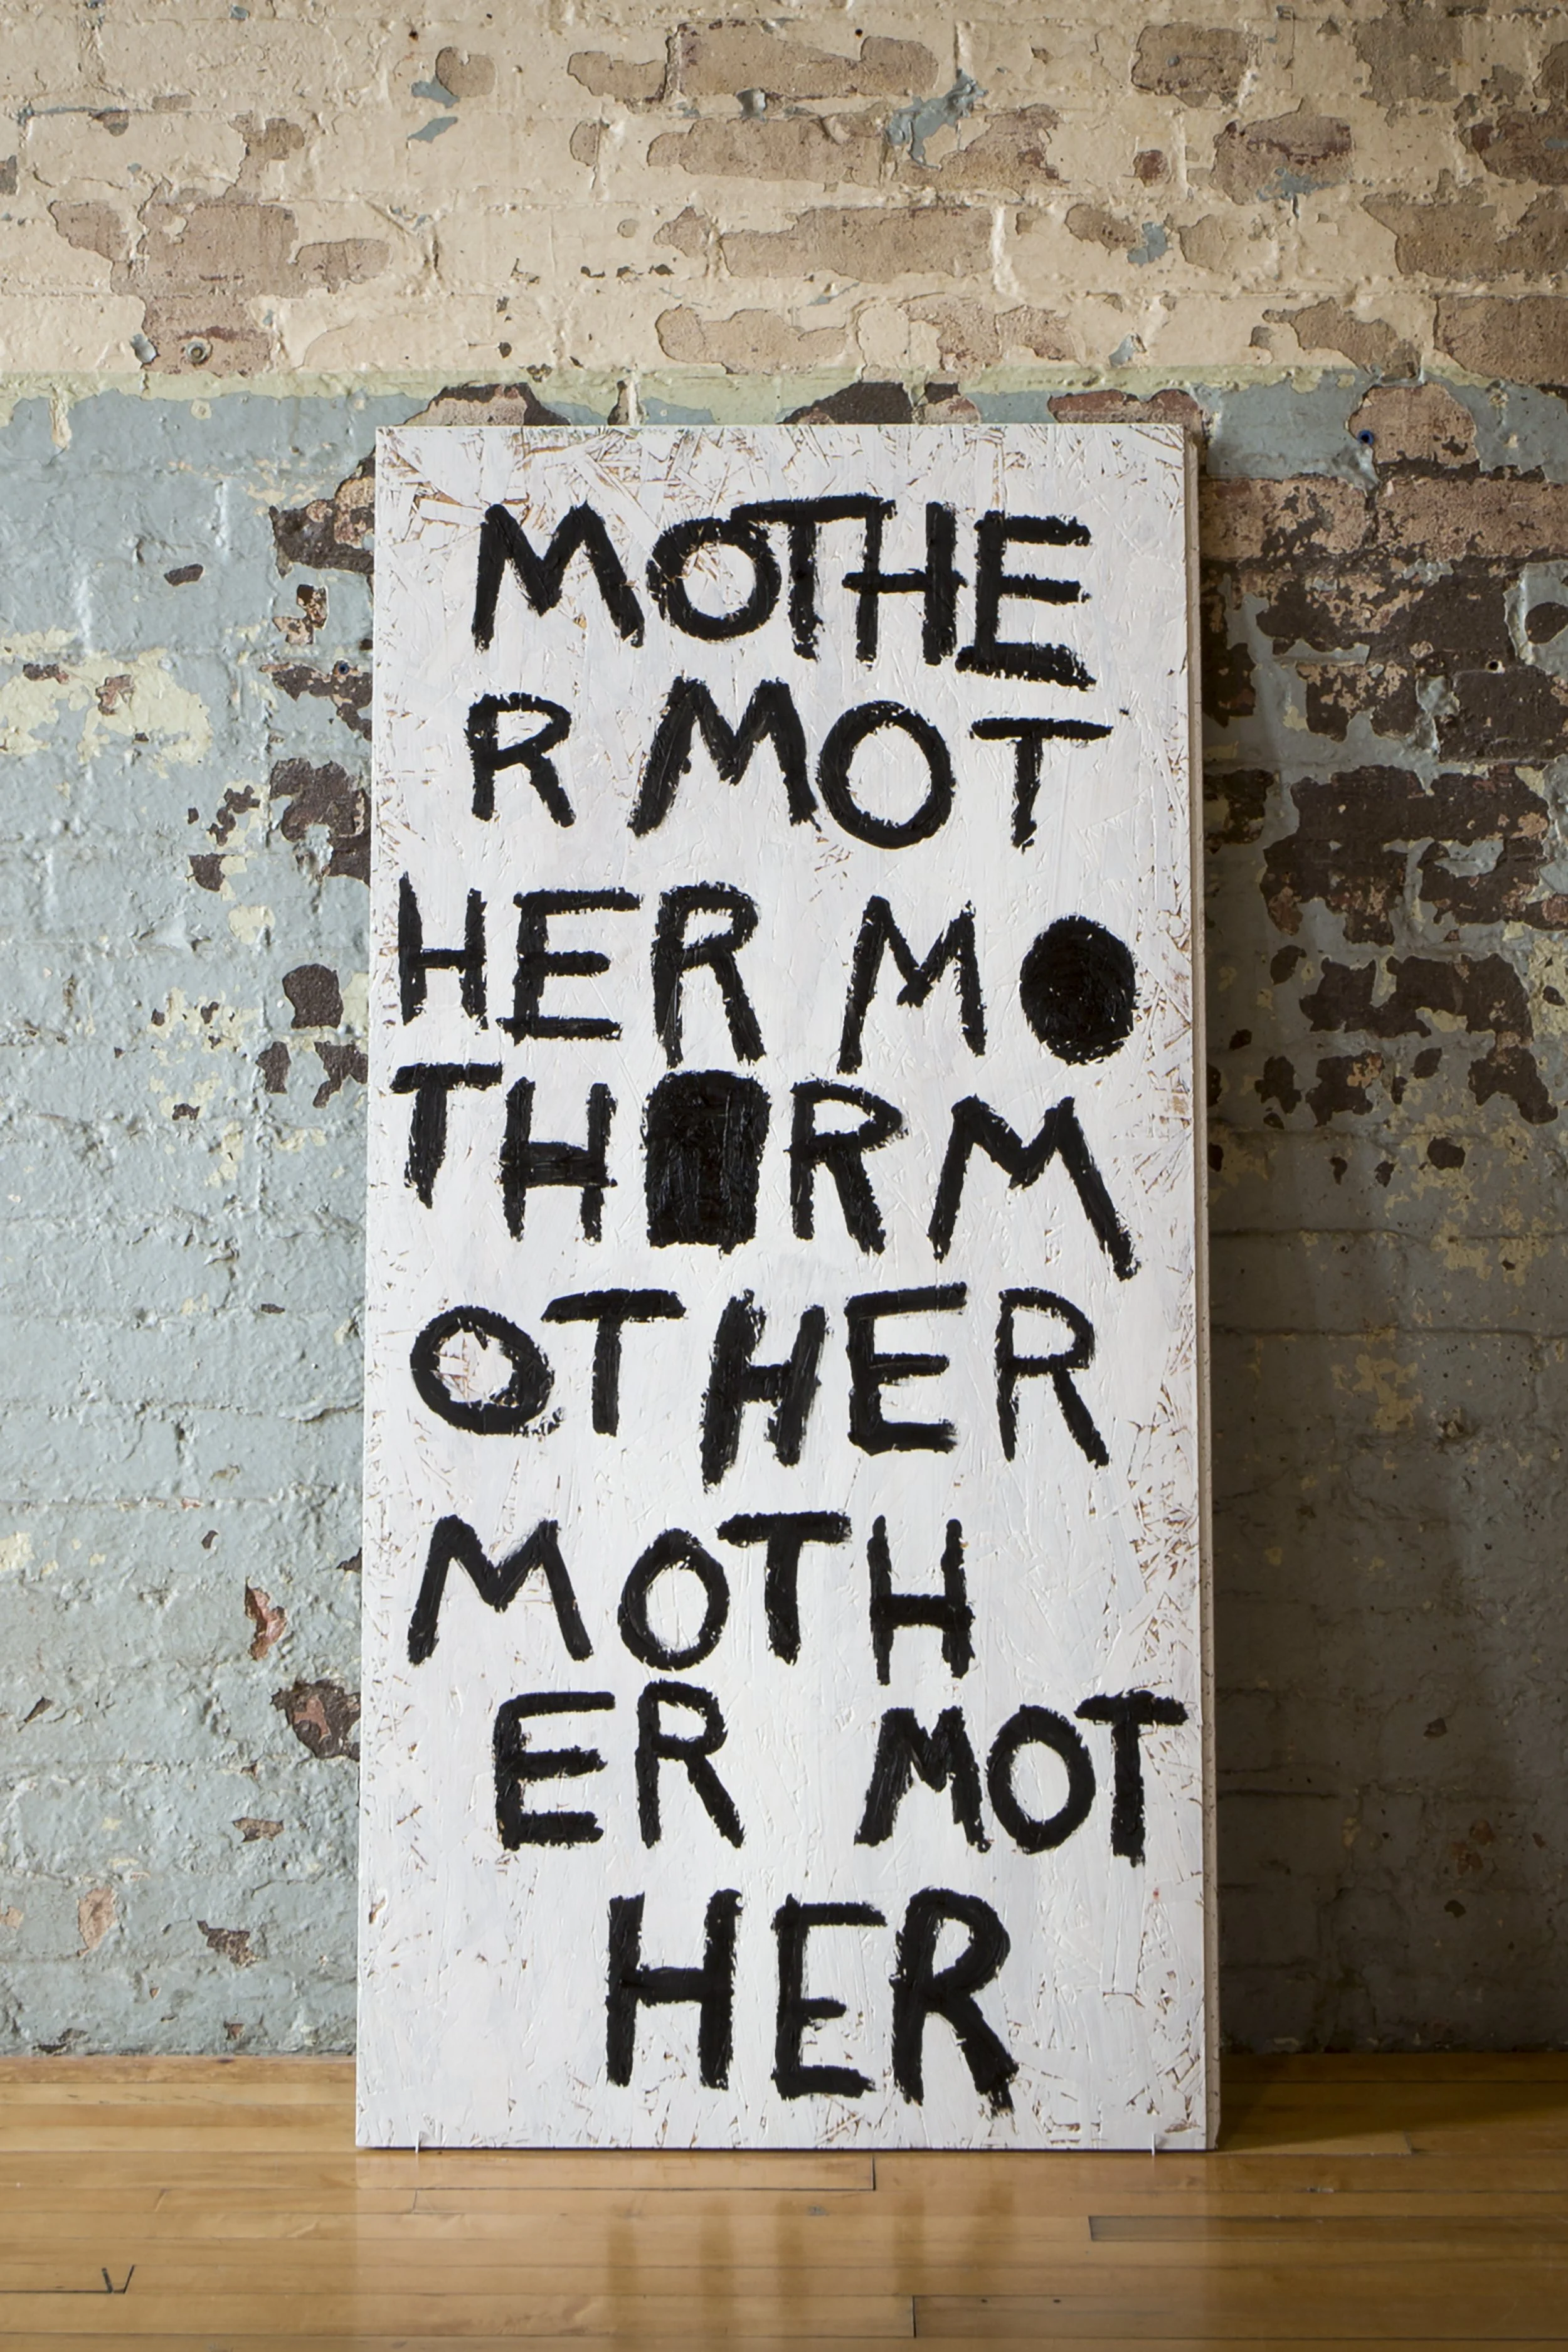 MOTHE
R MOT
HER M●
TH■RM
OTHER
MOTH
ER MOT
HER